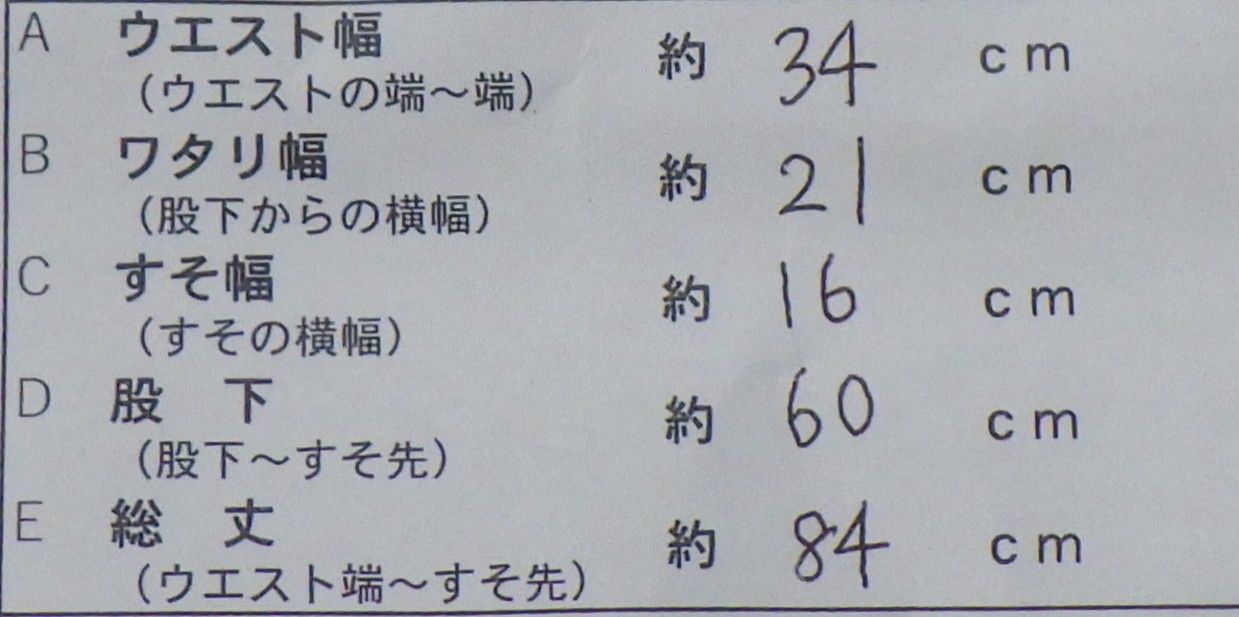 A ウエスト幅 約 34 cm
(ウエストの端～端)
B ワタリ幅 約 21 cm
(股下からの横幅)
C すそ幅 約 16 cm
(すその横幅)
D 股　下 約 60 cm
(股下～すそ先)
E 総　丈 約 84 cm
(ウエスト端～すそ先)